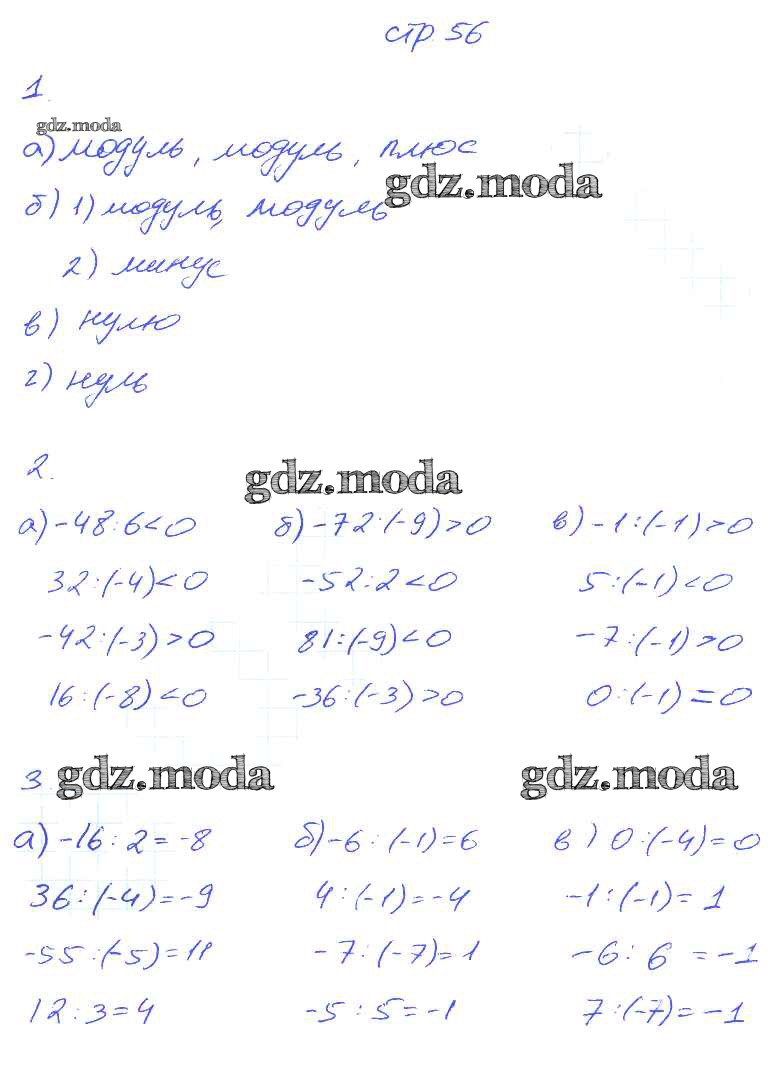 стр 56
1.
gdz.moda
а) модуль, модуль, плюс
gdz.moda
б) 1) модуль, модуль
2) минус
в) нулю
г) нуль
2.
gdz.moda
а) -48:6<0 б) -72:(-9)>0 в) -1:(-1)>0
32:(-4)<0 -52:2<0 5:(-1)<0
-42:(-3)>0 81:(-9)<0 -7:(-1)>0
16:(-8)<0 -36:(-3)>0 0:(-1)=0
3. gdz.moda gdz.moda
а) -16:2=-8 б) -6:(-1)=6 в) 0:(-4)=0
36:(-4)=-9 4:(-1)=-4 -1:(-1)=1
-55:(-5)=11 -7:(-7)=1 -6:6=-1
12:3=4 -5:5=-1 7:(-7)=-1